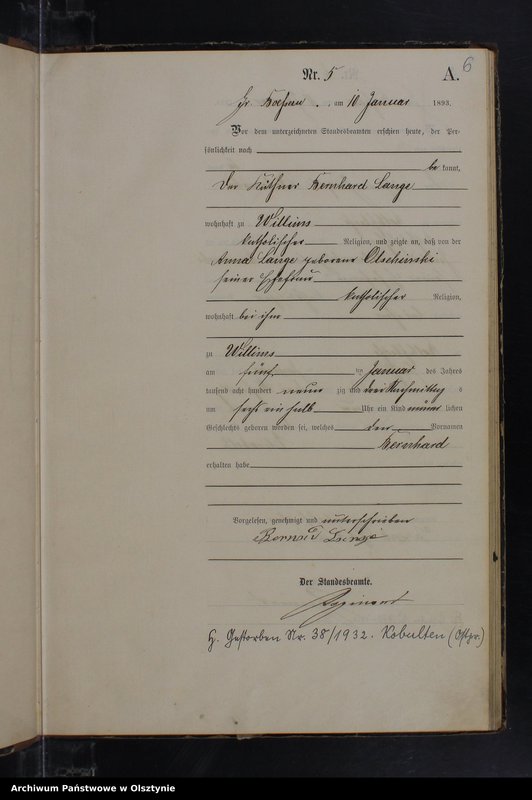 6
Nr. 5 A.
Gr. am 10 Januar 1893.
Vor dem unterzeichneten Standesbeamten erschien heute, der Per-
sönlichkeit nach
be kannt,
der Käthner Bernhard Lange
wohnhaft zu Willims
katholischer Religion, und zeigte an, daß von der
Anna Lange geborene Olschinski
seiner Ehefrau
katholischer Religion,
wohnhaft bei ihm
zu Willims
am fünf ten Januar des Jahres
tausend acht hundert neun zig und drei Nachmittag s
um sechs ein halb Uhr ein Kind männ lichen
Geschlechts geboren worden sei, welches den Vornamen
Bernhard
erhalten habe
Vorgelesen, genehmigt und unterschrieben
Bernard Lange
Der Standesbeamte.
H. Gestorben Nr. 38/1932. Kobulten (Ostpr.)
Archiwum Państwowe w Olsztynie